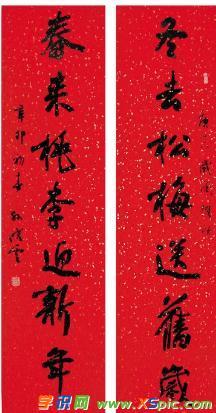 冬去松梅送舊歲
春来桃李迎新年
辛卯初春
学识网 www.XSpic.com